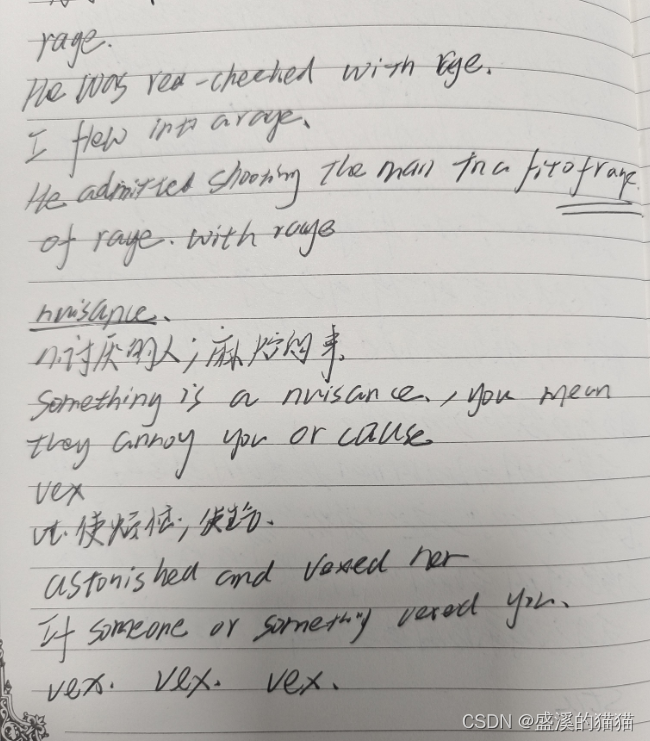 rage.
He was red-cheeked with rage.
I flew into a rage.
He admitted shooting the man in a fit of rage.
of rage. with rage
nuisance.
n.讨厌的人；麻烦的事.
Something is a nuisance., you mean
they annoy you or cause
vex
vt.使烦恼；使生气.
astonished and vexed her
If someone or something vexed you.
vex. vex. vex.
CSDN @盛溪的猫猫